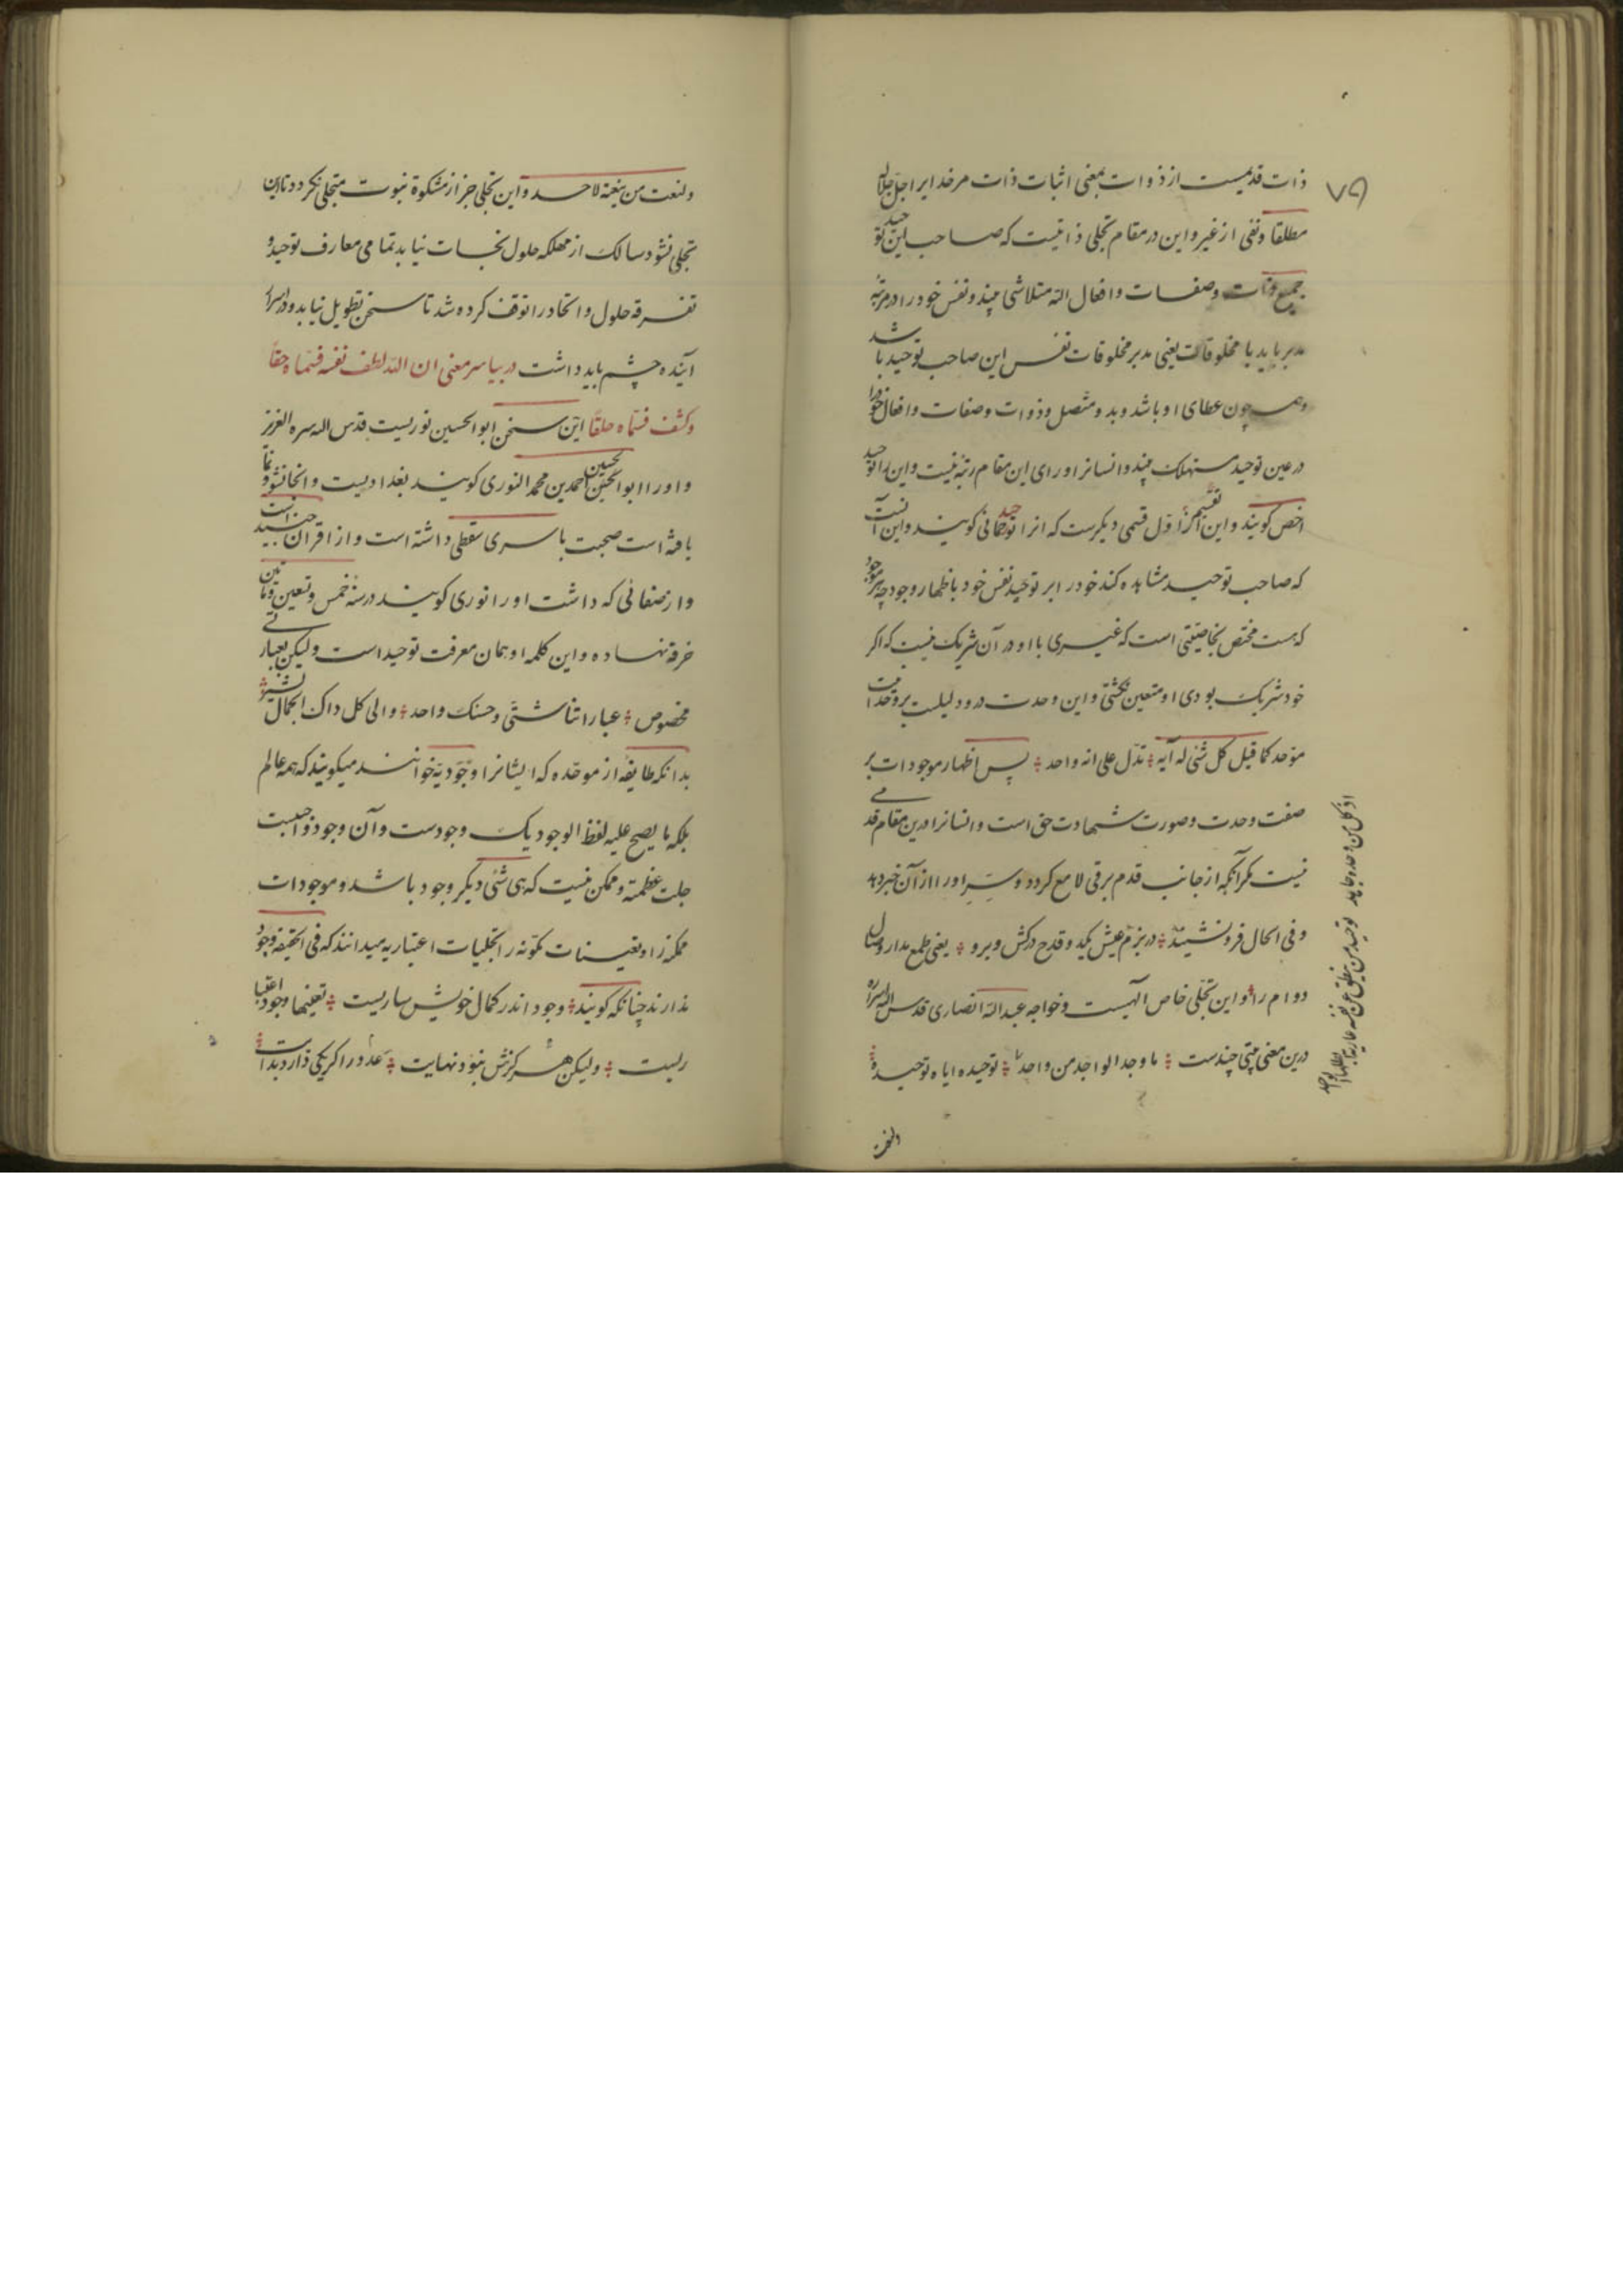 ۷۹
ذات قدیمیست از ذوات بمعنی اثبات ذات مر خدایرا جل جلاله
مطلقا و نفی از غیر و این در مقام تجلی ذاتیست که صاحب این توحید
جمیع ذات و صفات و افعال الله متلاشی بیند و نفس خود را در مرتبه
مدبر یابد با مخلوقات یعنی مدبر مخلوقات نفس این صاحب توحید باشد
و همچون عطای او باشد و بد و متصل و ذوات و صفات و افعال خود را
در عین توحید مستهلک بیند و انسانرا ورای این مقام رتبه نیست و این را توحید
اخص کویند و این تقسیم را اول قسمی دیکرست که انرا توحید کویند و این آنست
که صاحب توحید مشاهده کند خود را بر توحید نفس خود باظهار وجود هرچه موجود
که هست مختص بخاصیتی است که غیری با او در آن شریک نیست که اکر
خود شریک بودی او متعین نکشتی و این وحدت درو دلیلست بر وحدانیت
موحد کما قیل کل شئ له آیه تدل علی انه واحد پس اظهار موجودات بر
صفت وحدت و صورت شهادت حق است و انسانرا درین مقام قدمی
نیست مکر آنکه از جانب قدم برقی لامع کردد و سر او را از آن خبر دهد
و فی الحال فرو نشیند در بزم عیش یکدو قدح درکش و برو یعنی طمع مدار وصال
دوام را و این تجلی خاص الهیست و خواجه عبدالله انصاری قدس الله سره
درین معنی بیتی چندست ما وحد الواحد من واحد توحیده ایاه توحیده
اذ کل من وحده جاحد توحید من ینطق عن نعته عاریة ابطلها الواحد
ولنعت
ولنعت من ینعته لاحد و این تجلی جز از مشکوة نبوت متجلی نکردد تا این
تجلی نشود سالک از مهلکه حلول نجات نیابد تمامی معارف توحید و
تفرقه حلول و اتحاد را توقف کرده شد تا سخن تطویل نیابد و در اسرار
آینده چشم باید داشت در بیا سر معنی ان الله لطف نفسه فسماه حقا
و کشف فسماه خلقا این سخن ابوالحسین نوریست قدس الله سره العزیز
و او را ابوالحسین احمد بن محمد النوری کویند بغدادیست و انجا نشو و نما
یافته است صحبت با سری سقطی داشته است و از اقران جنید است
و از صفائی که داشت او را نوری کویند در سنه خمس و تسعین و مأتین
خرقه نهاده و این کلمه او همان معرفت توحید است ولیکن بعبارتی
مخصوص عباراتنا شتی و حسنک واحد و الی کل ذاک الجمال یشیر
بدانکه طایفه از موحده که ایشانرا وجودیه خوانند میکویند که همه عالم
بلکه ما یصح علیه لفظ الوجود یک وجودست و آن وجود واجبست
جلت عظمته و ممکن نیست که هی شئی دیکر وجود باشد و موجودات
ممکنه را و تعینات متکونه را تجلیات اعتباریه میدانند که فی الحقیقه وجود
ندارند چنانکه کویند وجود اندر کمال خویش ساریست تعینها وجود اعتبا
ریست ولیکن هرکزش نبود نهایت عدد را کر یکی دارد بدایت